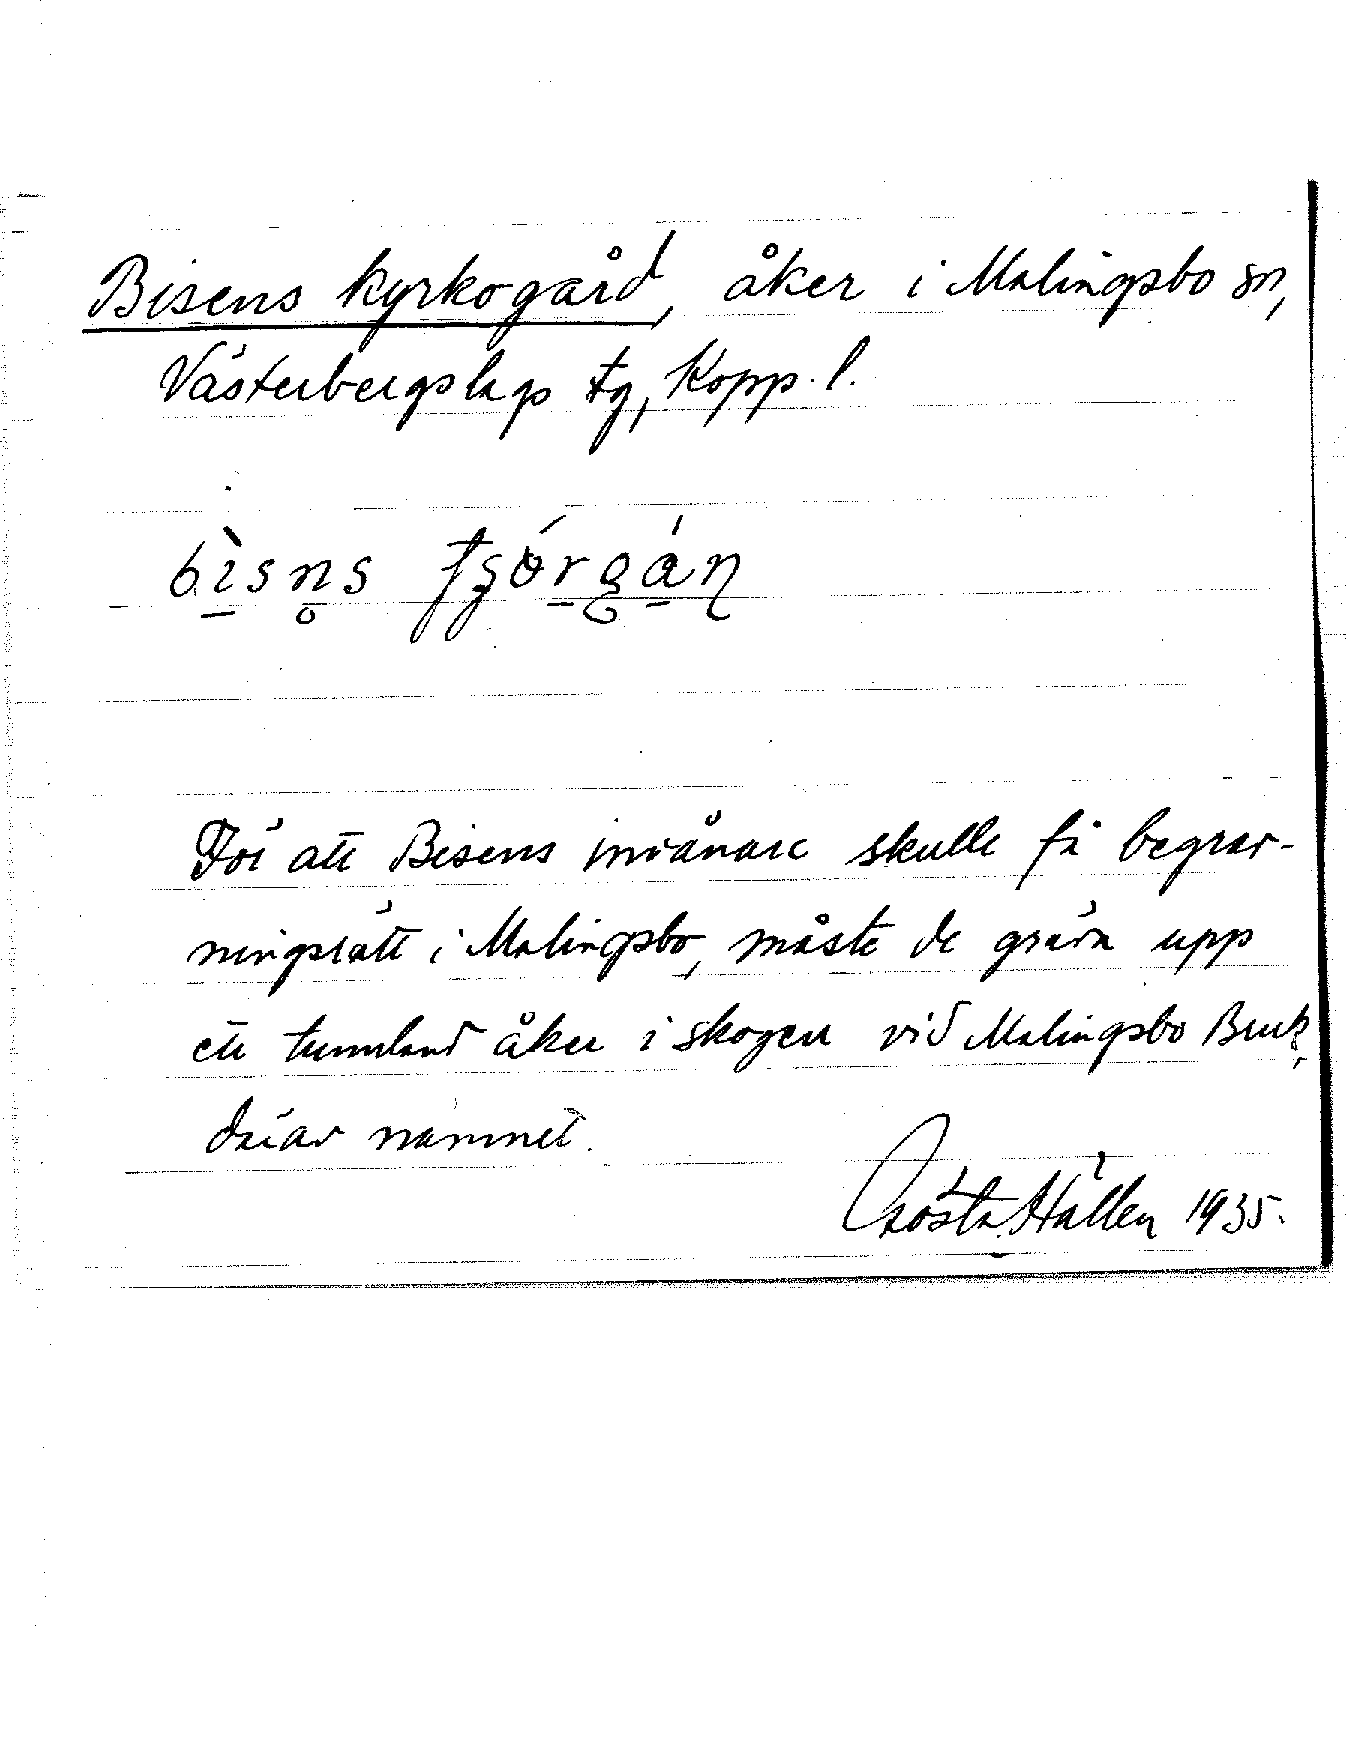 Bisens kyrkogård, åker i Malingsbo sn,
Västerbergslags tg, Kopp. l.
För att Bisens invånare skulle få begrav-
ningsrätt i Malingsbo, måste de gräva upp
ett tunnland åker i skogen vid Malingsbo Bruk,
därav namnet.
Gösta Hällen 1935.